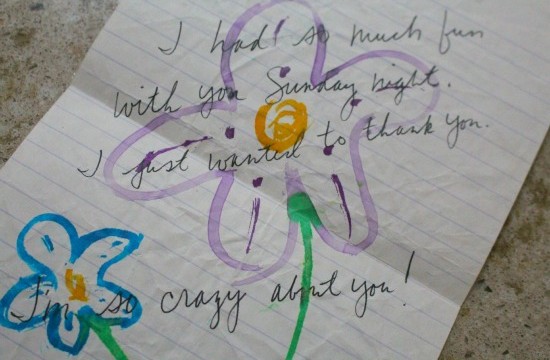 I had so much fun
with you Sunday night.
I just wanted to thank you.
I'm so crazy about you!